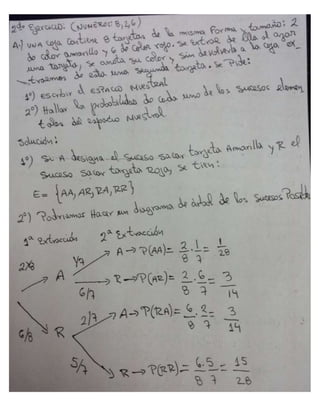 2do Ejercicio: (NUMEROS 8,2,6)
A.) UNA caja contiene 8 tarjetas de la misma Forma y tamaño: 2
de color amarillo y 6 de color rojo. Se Extrae de Ella al azar
una tarjeta, se anota su color y sin devolverla a la caja ex_
traemos de esta una segunda tarjeta. Se Pide:
1º) escribir el ESPACIO MUESTRAL
2º) Hallar la probabilidad de cada uno de los sucesos elemen
tales del espacio Muestral
Solución:
1º) Si A designa el suceso sacar tarjeta Amarilla y R el
suceso sacar tarjeta Roja, se tien:
E= {AA, AR, RA, RR}
2º) Podriamos Hacer un diagrama de árbol de los sucesos Posibles
1ª Extracción 2ª Extracción
2/8 A 1/7 A → P(AA) = 2/8 · 1/7 = 1/28
6/7 R → P(AR) = 2/8 · 6/7 = 3/14
6/8 R 2/7 A → P(RA) = 6/8 · 2/7 = 3/14
5/7 R → P(RR) = 6/8 · 5/7 = 15/28